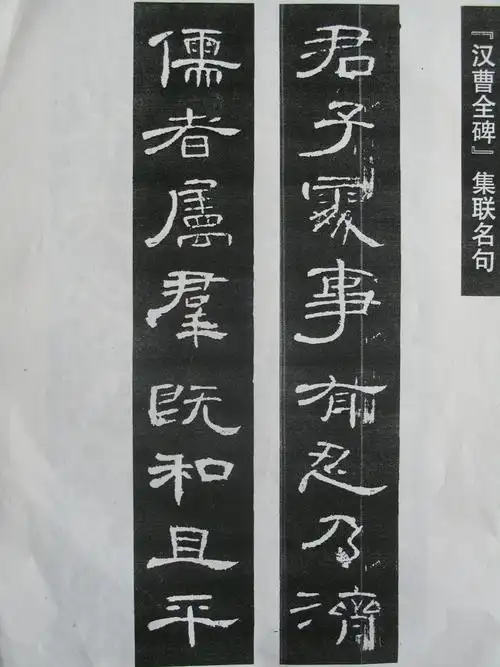 『汉曹全碑』集联名句
君子處事有忍乃濟
儒者羣既和且平